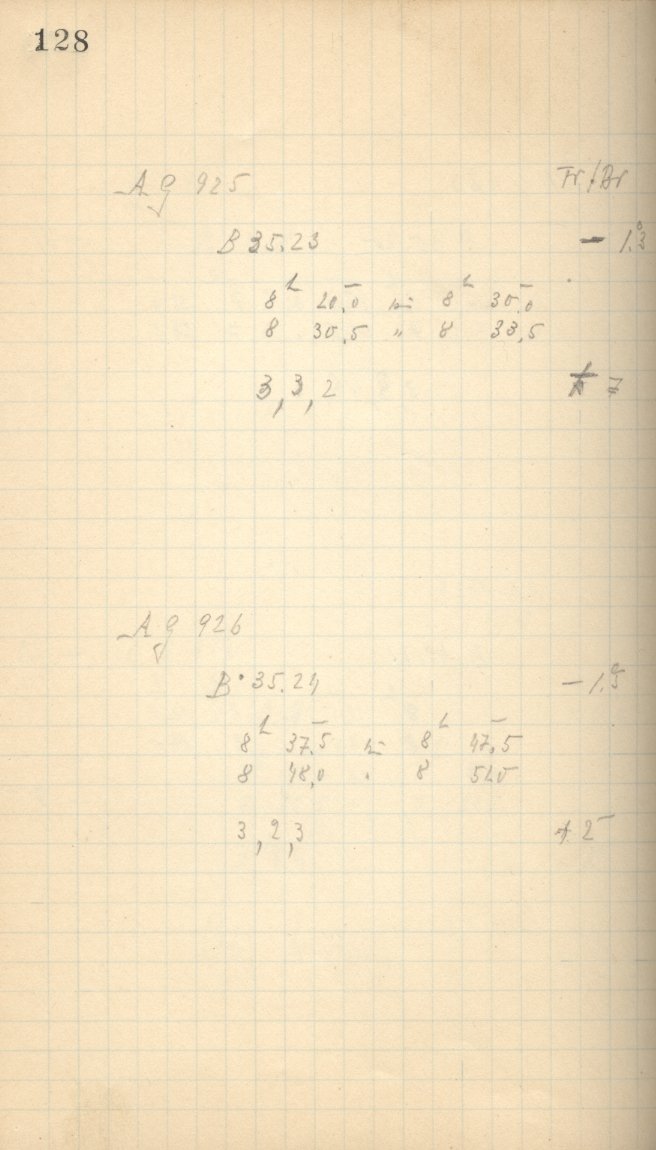 128
Ag 925 Fr/Br
B 35.23 - 1.°3
8ʰ 20,̄0 8ʰ 30,̄0
8 30,5 " 8 33,5
3,3,2 7
Ag 926
B 35.24 - 1.°5
8ʰ 37,̄5 8ʰ 47,̄5
8 48,0 8
3,2,3 + 2